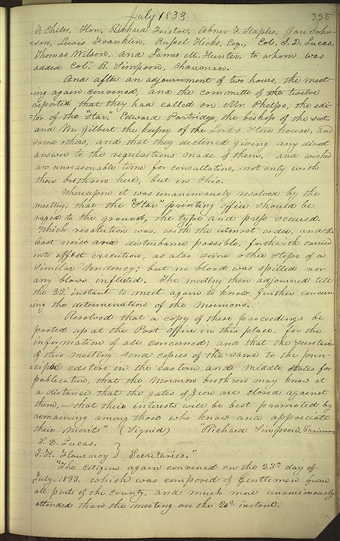 July 1833
325
F. Chiles, Hon. Richard Fristoe, Abner F. Staples, Gan. John-
son, Lewis Franklin, Russel Hicks, Esq., Col. S. D. Lucas,
Thomas Wilson, and James M. Hunter, to whom was
added Col. R. Simpson, Chairman.
And after an adjournment of two hours, the meet-
ing again convened, and the committee of twelve
reported that they had called on Mr Phelps, the edi-
tor of the Star, Edward Partridge, the bishop of the sect,
and Mr Gilbert the keeper of the Lord's Store house, and
some others, and that they declined giving any direct
answer to the requisitions made of them, and wished
an unreasonable time for consultation, not only with
their brethren here, but in Ohio.
Whereupon it was unanimously resolved by the
meeting, that the "Star" printing office should be
razed to the ground, the type and press secured.
Which resolution was, with the utmost order, and the
least noise and disturbance possible, forthwith carried
into effect execution, as also some other steps of a
similar tendency; but no blood was spilled nor
any blows inflicted. The meeting then adjourned till
the 23d instant to meet again to know further concern-
ing the determination of the Mormons.
Resolved that a copy of these proceedings be
posted up at the Post office in this place, for the
information of all concerned; and that the secretaries
of this meeting send copies of the same to the prin-
cipal editors in the eastern and middle states for
publication, that the Mormon brethren may know at
a distance that the gates of Zion are closed against
them,—that their interests will be best promoted by
remaining among those who know and appreciate
their merits." (Signed) Richard Simpson, Chairman
S. D. Lucas, }
J. H. Flournoy } Secretaries."
"The citizens again convened on the 23d day of
July, 1833, which was composed of Gentlemen from
all parts of the County, and much more unanimously
attended than the meeting on the 20th instant.